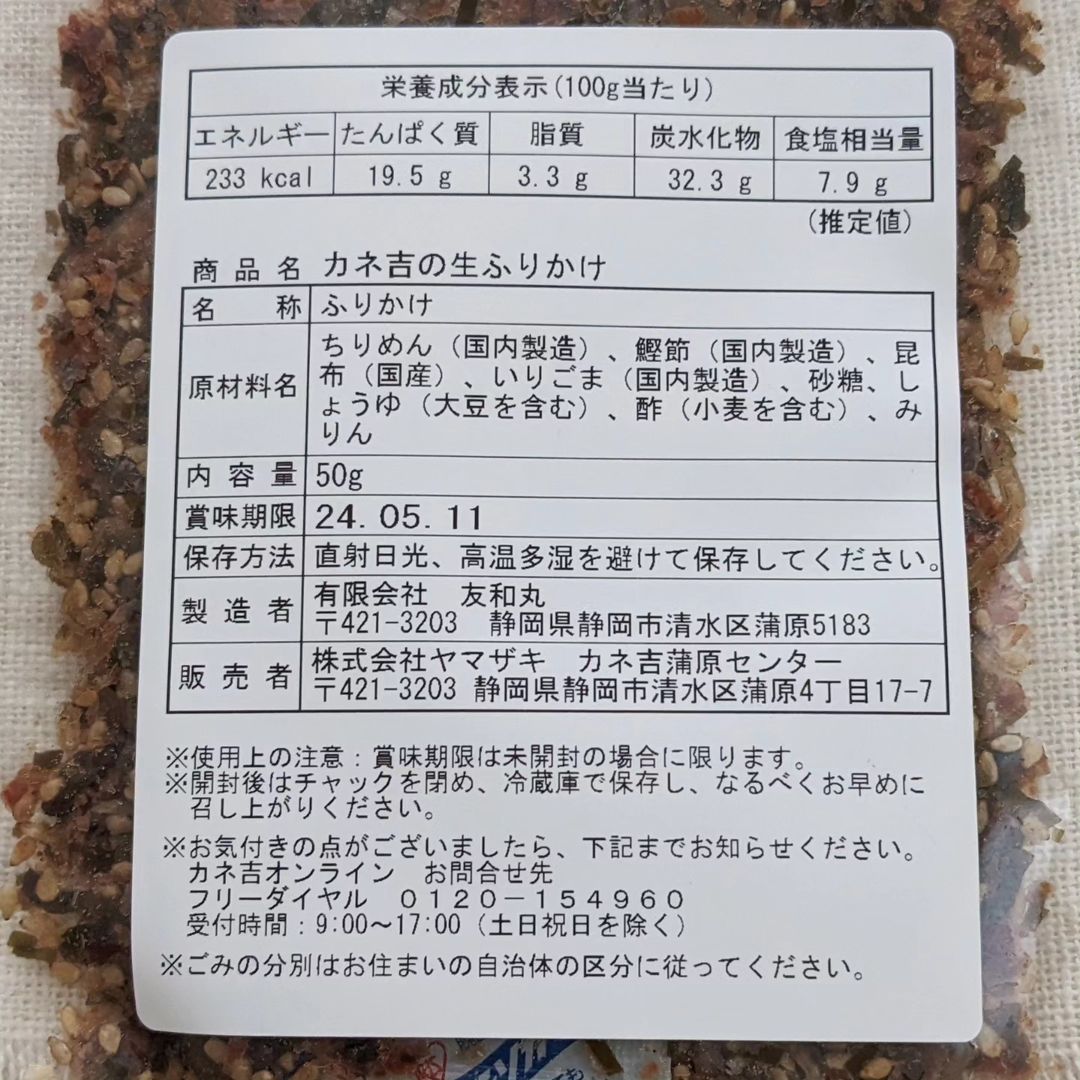 栄養成分表示(100g当たり)
エネルギー たんぱく質 脂質 炭水化物 食塩相当量
233 kcal 19.5 g 3.3 g 32.3 g 7.9 g
(推定値)
商品名 カネ吉の生ふりかけ
名称 ふりかけ
原材料名 ちりめん（国内製造）、鰹節（国内製造）、昆
布（国産）、いりごま（国内製造）、砂糖、し
ょうゆ（大豆を含む）、酢（小麦を含む）、み
りん
内容量 50g
賞味期限 24.05.11
保存方法 直射日光、高温多湿を避けて保存してください。
製造者 有限会社 友和丸
〒421-3203 静岡県静岡市清水区蒲原5183
販売者 株式会社ヤマザキ カネ吉蒲原センター
〒421-3203 静岡県静岡市清水区蒲原4丁目17-7
※使用上の注意：賞味期限は未開封の場合に限ります。
※開封後はチャックを閉め、冷蔵庫で保存し、なるべくお早めに
召し上がりください。
※お気付きの点がございましたら、下記までお知らせください。
カネ吉オンライン お問合せ先
フリーダイヤル ０１２０－１５４９６０
受付時間：9:00～17:00（土日祝日を除く）
※ごみの分別はお住まいの自治体の区分に従ってください。